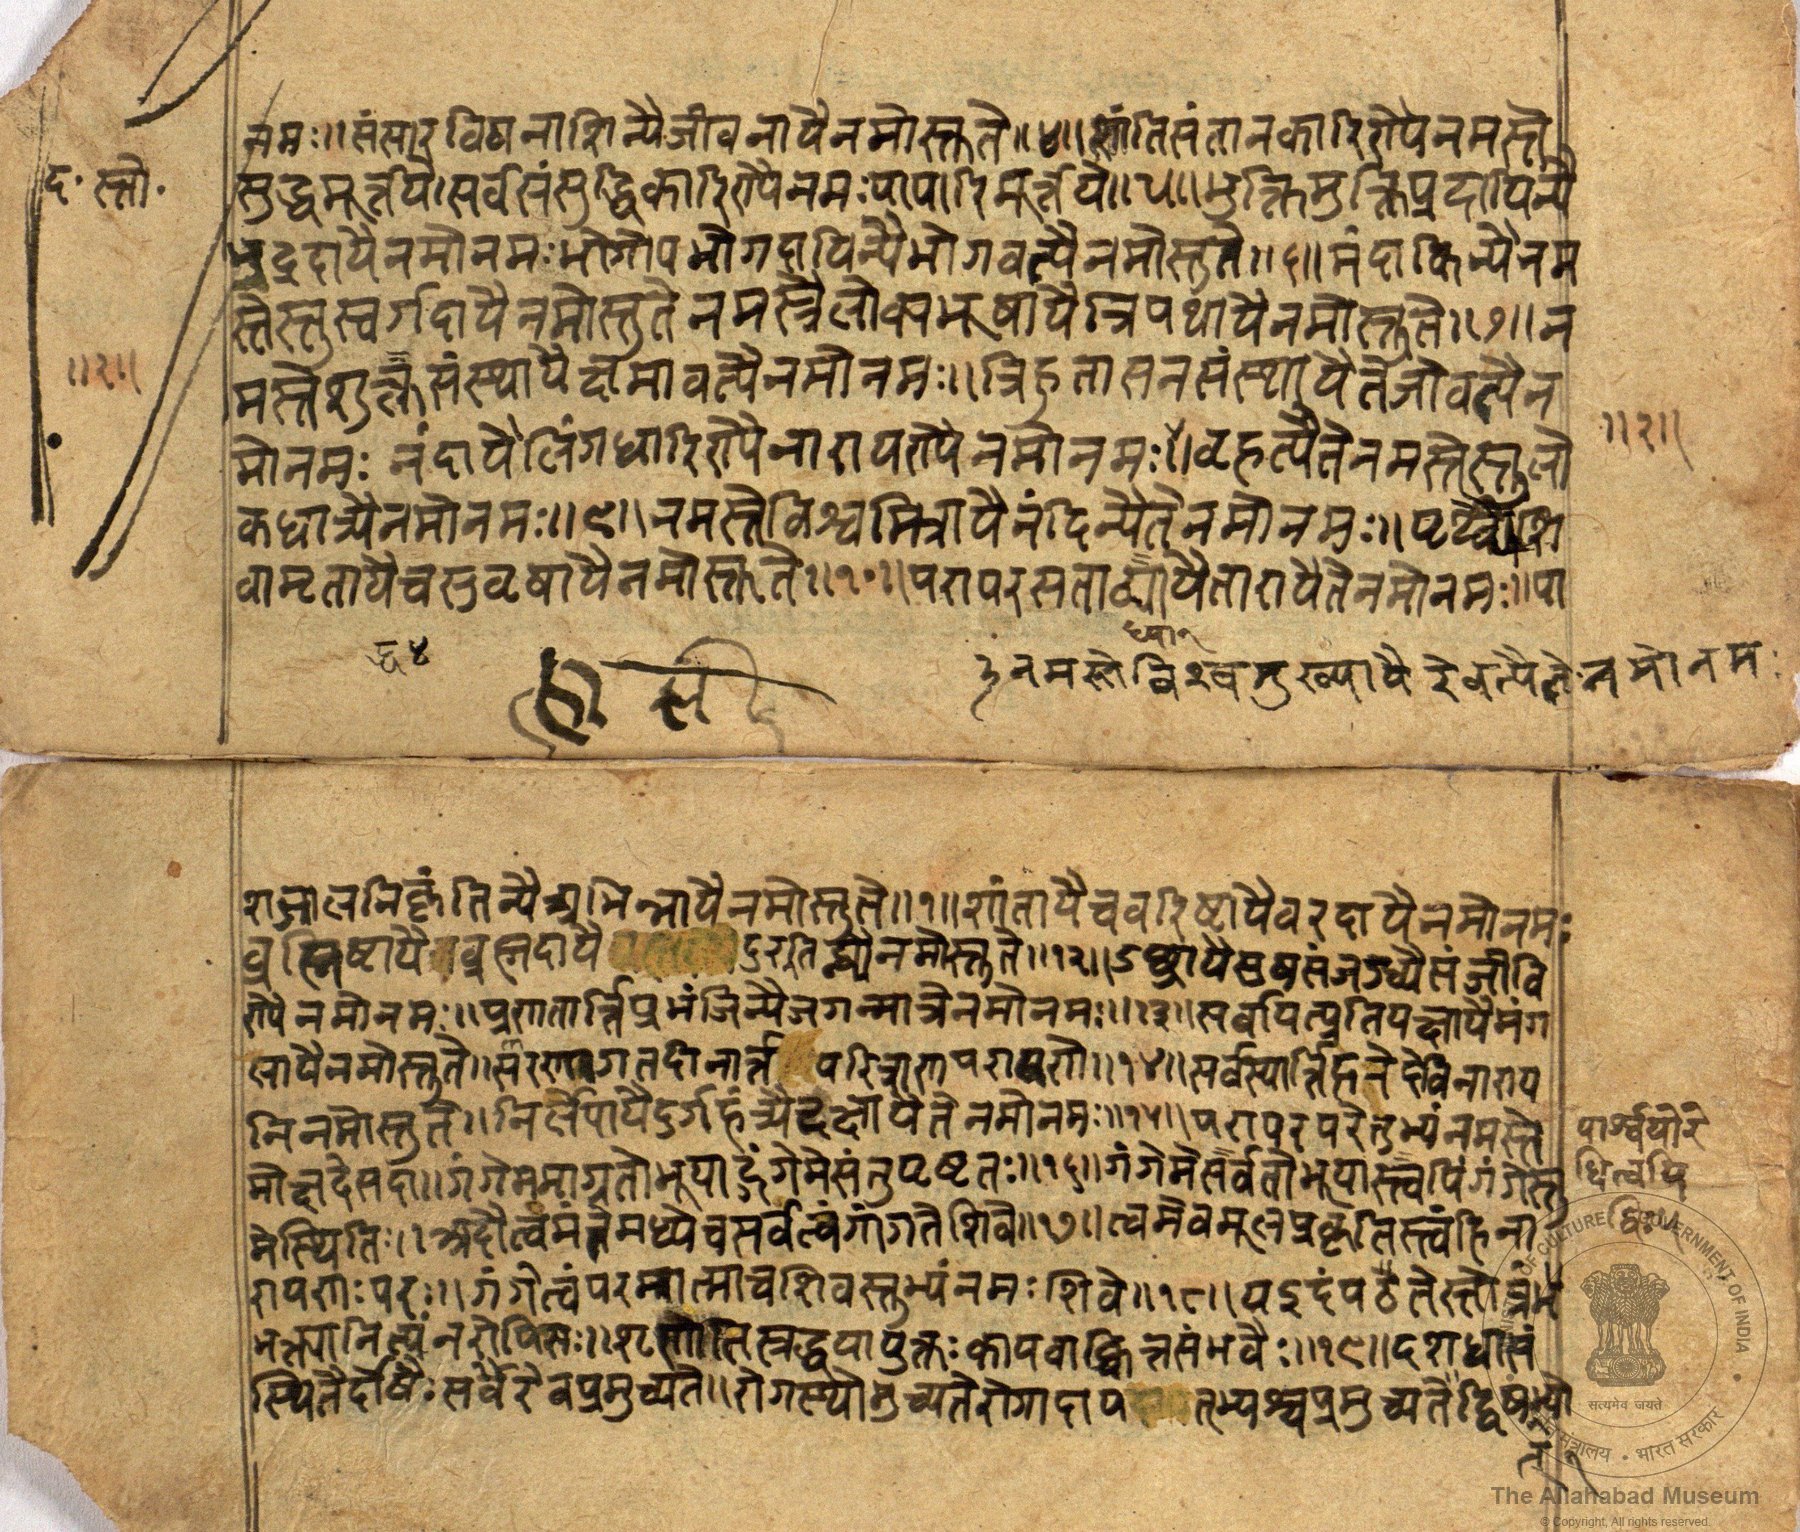 नमः॥संसारविषनाशिन्यैजीवनायैनमोस्तुते॥४॥शांतिसंतानकारिण्यैनमस्ते
द॰ स्तो॰
सुद्धमूर्त्तये।सर्वसंसुद्धिकारिण्यैनमःपापारिमूर्त्तये॥५॥भुक्तिमुक्तिप्रदायिन्यै
भद्रदायैनमोनमःभोगोपभोगदायिन्यैभोगवत्यैनमोस्तुते॥६॥मंदाकिन्यैनम
स्तेस्तुस्वर्गदायैनमोस्तुतेनमस्त्रैलोक्यभूषायैत्रिपथायैनमोस्तुते॥७॥न
॥२॥
मस्तेशुक्लसंस्थायैक्षमावत्यैनमोनमः॥त्रिहुतासनसंस्थायैतेजोवत्यैन
॥२॥
मोनमः नंदायैलिंगधारिण्यैनारायण्यैनमोनमः॥वृहत्यैतेनमस्तेस्तुलो
कधात्र्यैनमोनमः॥९॥नमस्तेविश्वमित्रायैनंदिन्यैतेनमोनमः॥पृथ्व्यैशि
वामृतायैचसुवृषायैनमोस्तुते॥१०॥परापरसताढ्यायैतारायैतेनमोनमः॥पा
नमस्तेविश्वमुख्यायै रेवत्यैते नमोनमः
शजालनिकृंतिन्यैअभिन्नायैनमोस्तुते॥१॥शांतायैचवरिष्टायैवरदायैनमोनमः
दुर्गतिघ्न्यैनमोस्तुते॥१२॥उग्रायैसुषसंजग्ध्यैसंजीवि
ण्यैनमोनमः॥प्रणतार्त्तिप्रभंजिन्यैजगन्मात्रेनमोनमः॥१३॥सर्वापत्प्रतिपक्षायैमंग
लायैनमोस्तुते॥सरणागतदीनार्त्त परित्राणपरायणे॥१४॥सर्वस्यार्त्तिहरेदेविनाराय
निनमोस्तुते॥निर्लेपायैदुर्गहंत्र्यैदक्षायैतेनमोनमः॥१५॥परापरपरेतुभ्यंनमस्ते
पार्श्वयोरे
मोक्षदेसदा॥गंगेममाग्रतोभूयाद्गंगेमेसंतुपृष्टतः॥१६॥गंगेमेसर्वतोभूयास्त्वयिगंगेस्तु
धित्वयि
मेस्थितिः॥आदौत्वमंतेमध्येचसर्वत्वंगांगतेशिवे॥१७॥त्वमेवमूलप्रकृतिस्त्वंहिना
रायणःपरः॥गंगेत्वंपरमात्माचशिवस्तुभ्यंनमःशिवे॥१८॥यइदंपठतेस्तोत्रंभ
क्त्यानित्यंनरोपियः॥शृणोतिस्रद्धयायुक्तःकायवाक्चित्तसंभवैः॥१९॥दशधासं
स्थितैर्दोषैःसर्वैरेवप्रमुच्यते॥रोगस्थोमुच्यतेरोगादाप भ्यश्चप्रमुच्यतेद्विषद्भ्यो
MINISTRY OF CULTURE GOVERNMENT OF INDIA
सत्यमेव जयते
संस्कृति मंत्रालय • भारत सरकार
The Allahabad Museum
© Copyright, All rights reserved.